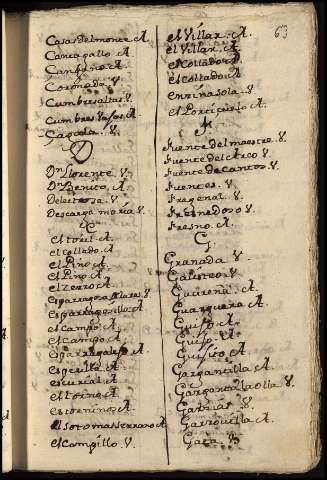 63
Casasdelmonte. A.
Cantagallo. A.
Canchno. A.
Coronada. V.
Cumbresaltas V.
Cumbres vajas A.
Caçeola. V.
D
Dn Llorente. V.
Dn Benito. A.
Deleitosa. V.
Descargamaria V.
E
el toril. A.
el collado. A.
el Pino A.
el Pino A.
el Zerro A.
esparragosa V.
esparragosillo A.
el campo. A.
el campo A.
esparragalejo A.
esperilla A.
escurial A.
el torno A.
estorninos. A.
el soto mas serrano A.
el campillo V.
el Villar. A.
el Villar. A.
el Collado A
el collado A
enzinasola. V.
el Porciçuelo A.
F
fuente del maestre V.
fuente del Arco V.
fuente de cantos V.
fuentes. V.
fregenal. V.
fresnedoso V.
fresno. A.
G
Granada V.
Galisteo V.
Guareña. A.
Guarguera A.
Guijo A.
Guijo. A.
Guijito. A.
Gargantilla A.
Gargantalaolla V.
Garvin V.
Garrovilla A.
Gata